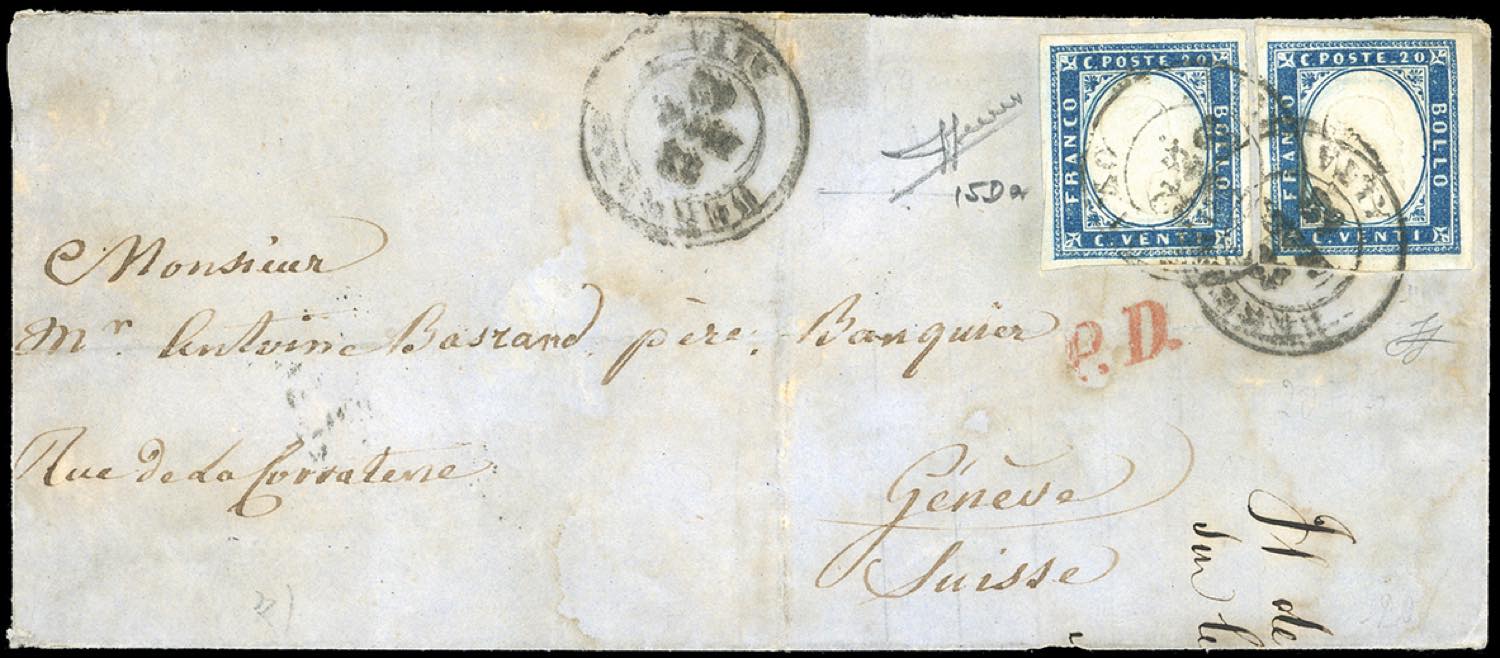 C. POSTE 20
FRANCO
BOLLO
C. VENTI
C. POSTE 20
FRANCO
BOLLO
C. VENTI
15Da
Monsieur
Mr. Antoine Bastand père, Banquier
P.D.
Rue de La Corraterie
Génève
Suisse
de
Sur le